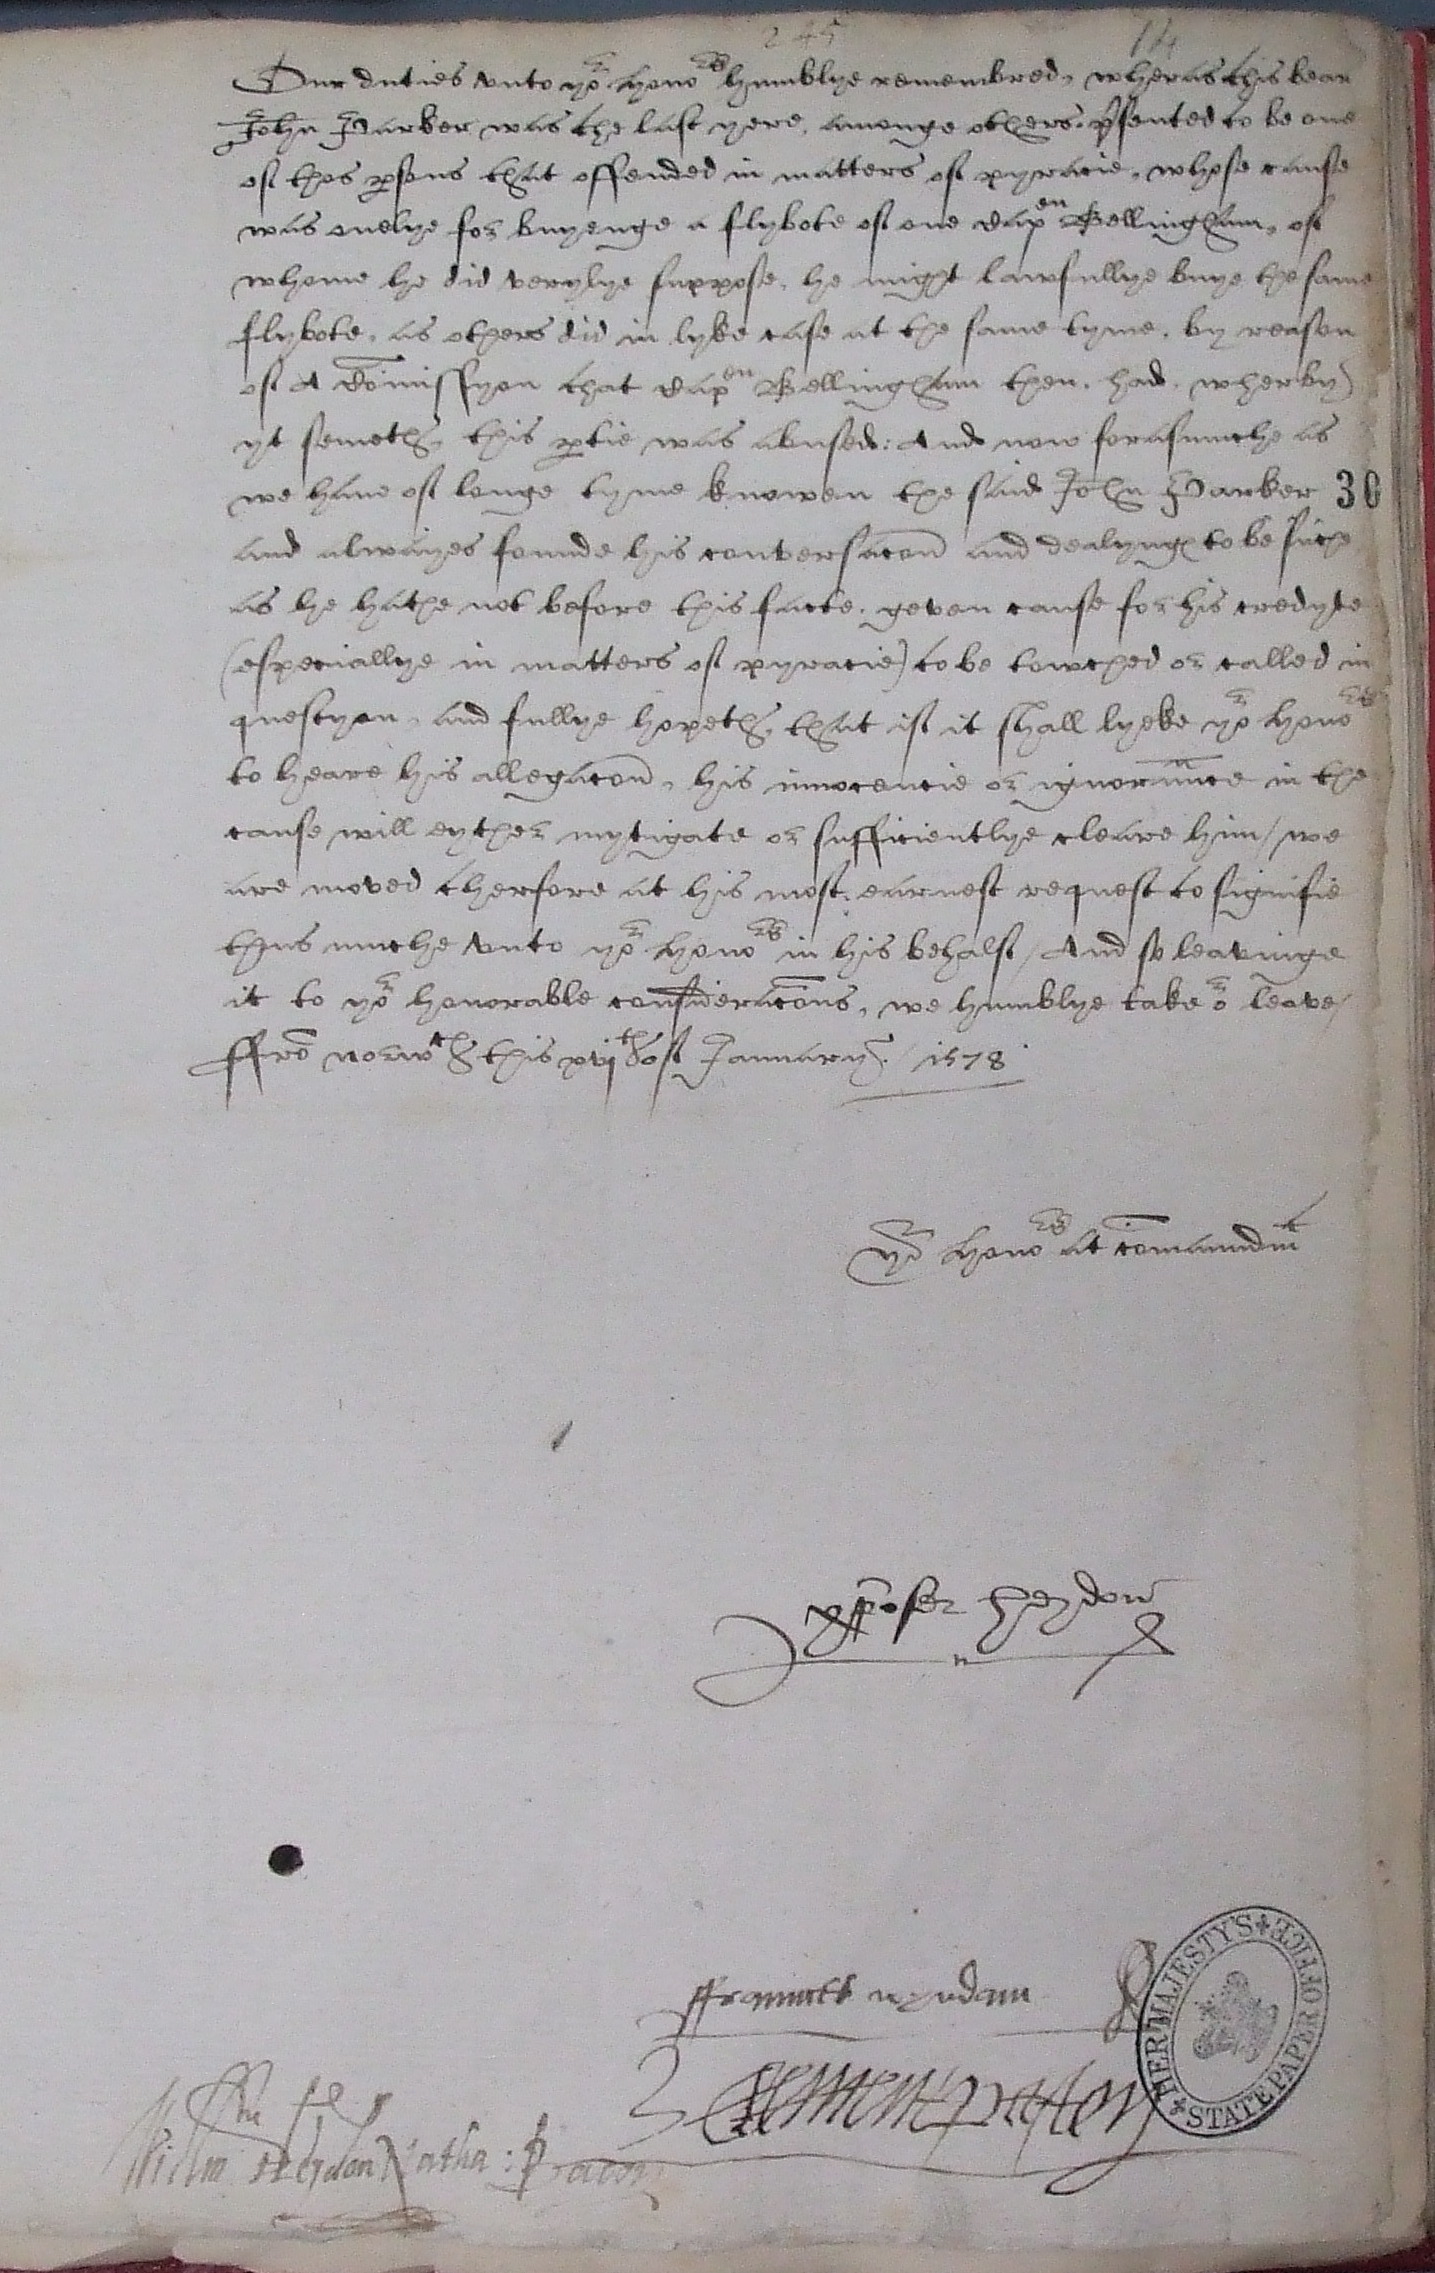 245 14
Our duties vnto yor honors humblye remembred, wheras this bear
John Parker was the last yere, amonge others, psented to be one
of thos psons that offended in matters of pyracie, whose cause
was onelye for buyenge a flybote of one Capen Bellingham, of
whome he did verylye suppose, he might lawfullye buye the same
flybote, as others did in lyke case at the same tyme, by reason
of A Comissyon that Capen Bellingham then had, wherby
yt semeth, this ptie was abused: And now forasmuche as
we haue of longe tyme knowen the said John Parker 30
and alwayes founde his conversacon and dealyng to be suche
as he hathe not before this facte, geven cause for his credyte
(especiallye in matters of pyracie) to be towched or called in
questyon, and fullye hopeth, that if it shall lyeke yor honors
to heare his allegacon, his innocencie or ignorannce in the
cause will eyther mytigate or sufficientlye cleare him / we
are moved therfore at his most earnest request to signifie
thus muche vnto yor honors in his behalf / And so leavinge
it to yor honorable consideracons, we humblye take or leave /
ffro norwch this xvjth of January. / 1578
yor honors at comaundmt
xpofer heydon
ffrauncis wyndam
Clement paston
Willm Heydon Natha: Bacon
HER MAJESTY'S STATE PAPER OFFICE